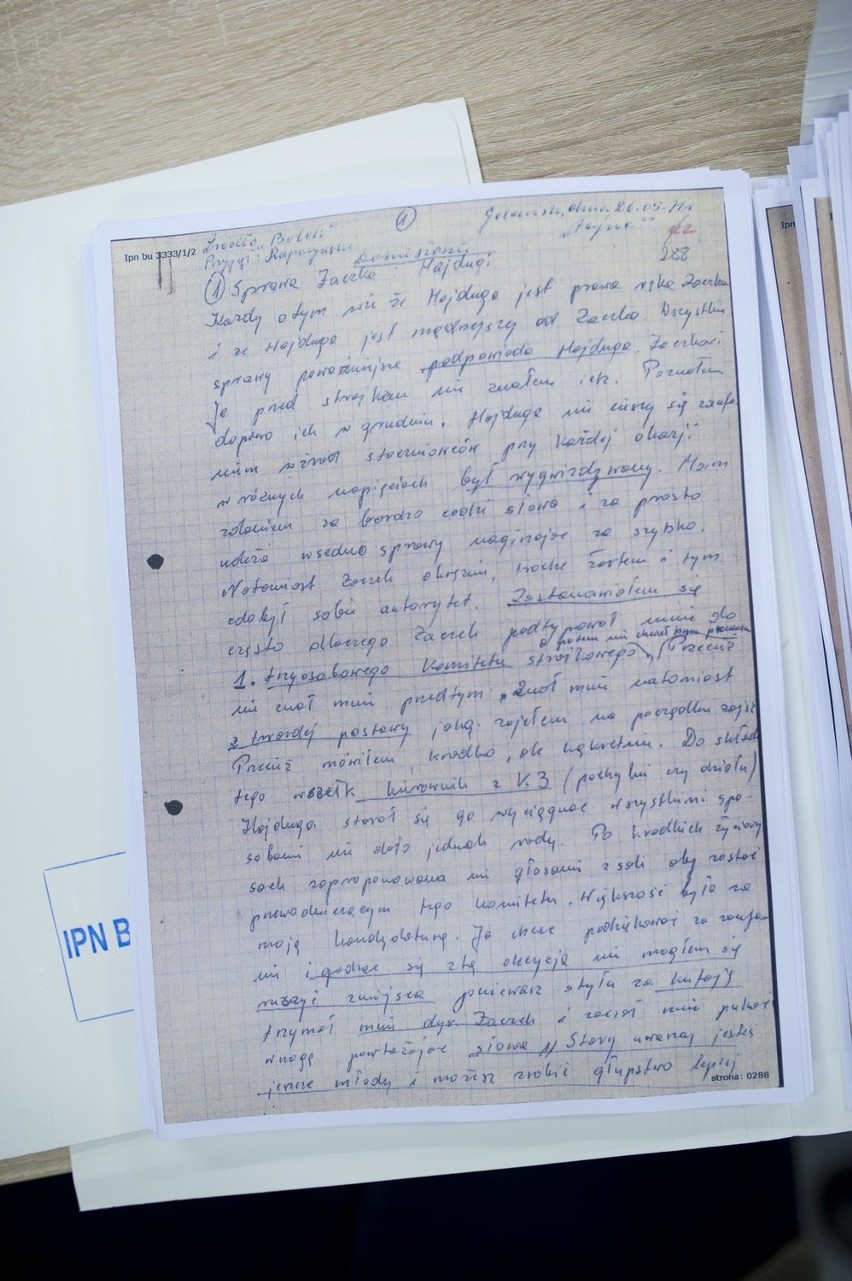 Ipn bu 3333/1/2
Źródło „Bolek"
Przyjął: Rapczyński
①
Gdańsk, dnia 26.05.71r
„Tajne"
Doniesienie
288
① Sprawa Zaczka i Hajdugi
Każdy o tym wie że Hajduga jest prawa ręka Zaczka
i że Hajduga jest mądrzejszy od Zaczka. Wszystkie
sprawy poważniejsze podpowiada Hajduga Zaczkowi
Ja przed strajkiem nie znałem ich. Poznałem
dopiero ich w grudniu. Hajduga nie cieszy się zaufa
niem wśród stoczniowców przy każdej okazji
w różnych napięciach był wygwizdywany. Moim
zdaniem za bardzo cedzi słowa i za prosto
uderza w sedno sprawy naginając za szybko.
Natomiast Zaczek okrężnie, trochę żartem i tym
zdobył sobie autorytet. Zastanawiałem się
często dlaczego Zaczek podtypował mnie do
a potem nie chciał bym
1. trzyosobowego komitetu strajkowego. Przecież
nie znał mnie przedtym. Znał mnie natomiast
z twardej postawy jaką zająłem na początku zajść
Przecież mówiłem krodko, ale kąkretnie. Do składu
tego wszetk kierownik z K3 (pochylni czy działu)
Hajduga starał się go wyciągnąć wszystkimi spo-
sobami nie dało jednak rady. Po krodkich życiowy
sach zaproponowano mi głosami z sali aby zostać
przewodniczącym tego komitetu. Większość była za
moją kandydaturą. Ja chcąc podziękować za zaufa
nie i godząc się z tą decyzją nie mogłem się
ruszyć z miejsca ponieważ z tyłu za kufajkę
trzymał mnie dyr. Zaczek i zaczął mnie pukać
w nogę powtarzając słowa „Stary uważaj jesteś
jeszcze młody i możesz zrobić głupstwo lepiej
strona: 0288
IPN B
Ipn